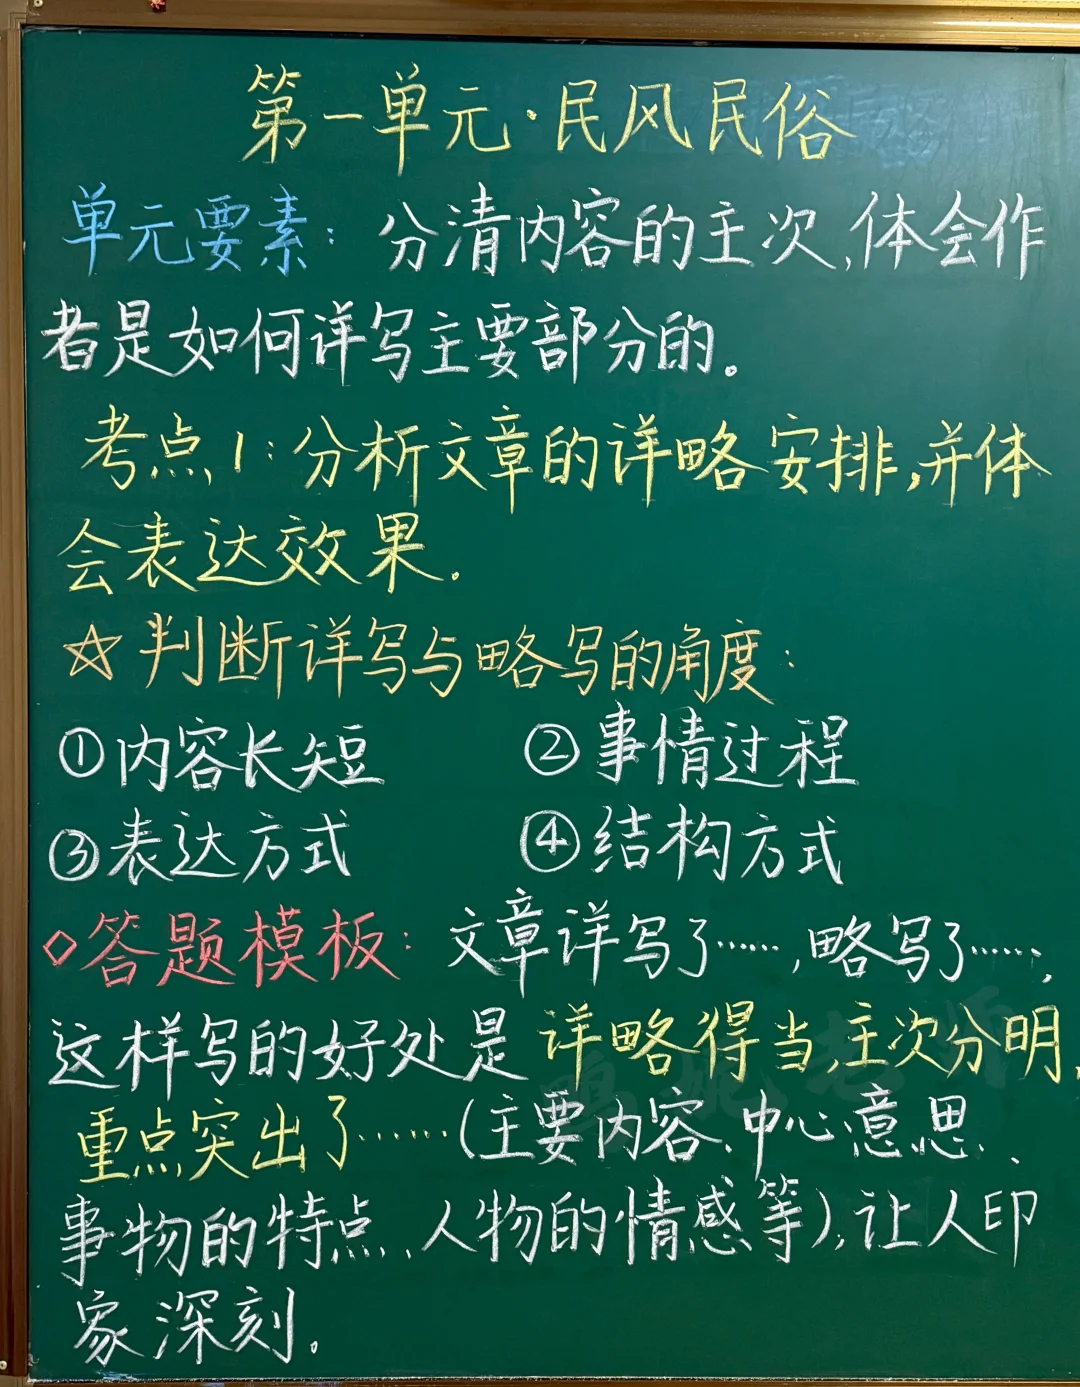 第一单元·民风民俗
单元要素：分清内容的主次,体会作
者是如何详写主要部分的。
考点1：分析文章的详略安排,并体
会表达效果.
☆判断详写与略写的角度：
①内容长短 ②事情过程
③表达方式 ④结构方式
◇答题模板：文章详写了……,略写了……,
这样写的好处是详略得当,主次分明,
重点突出了……(主要内容、中心意思、
事物的特点、人物的情感等),让人印
象深刻。